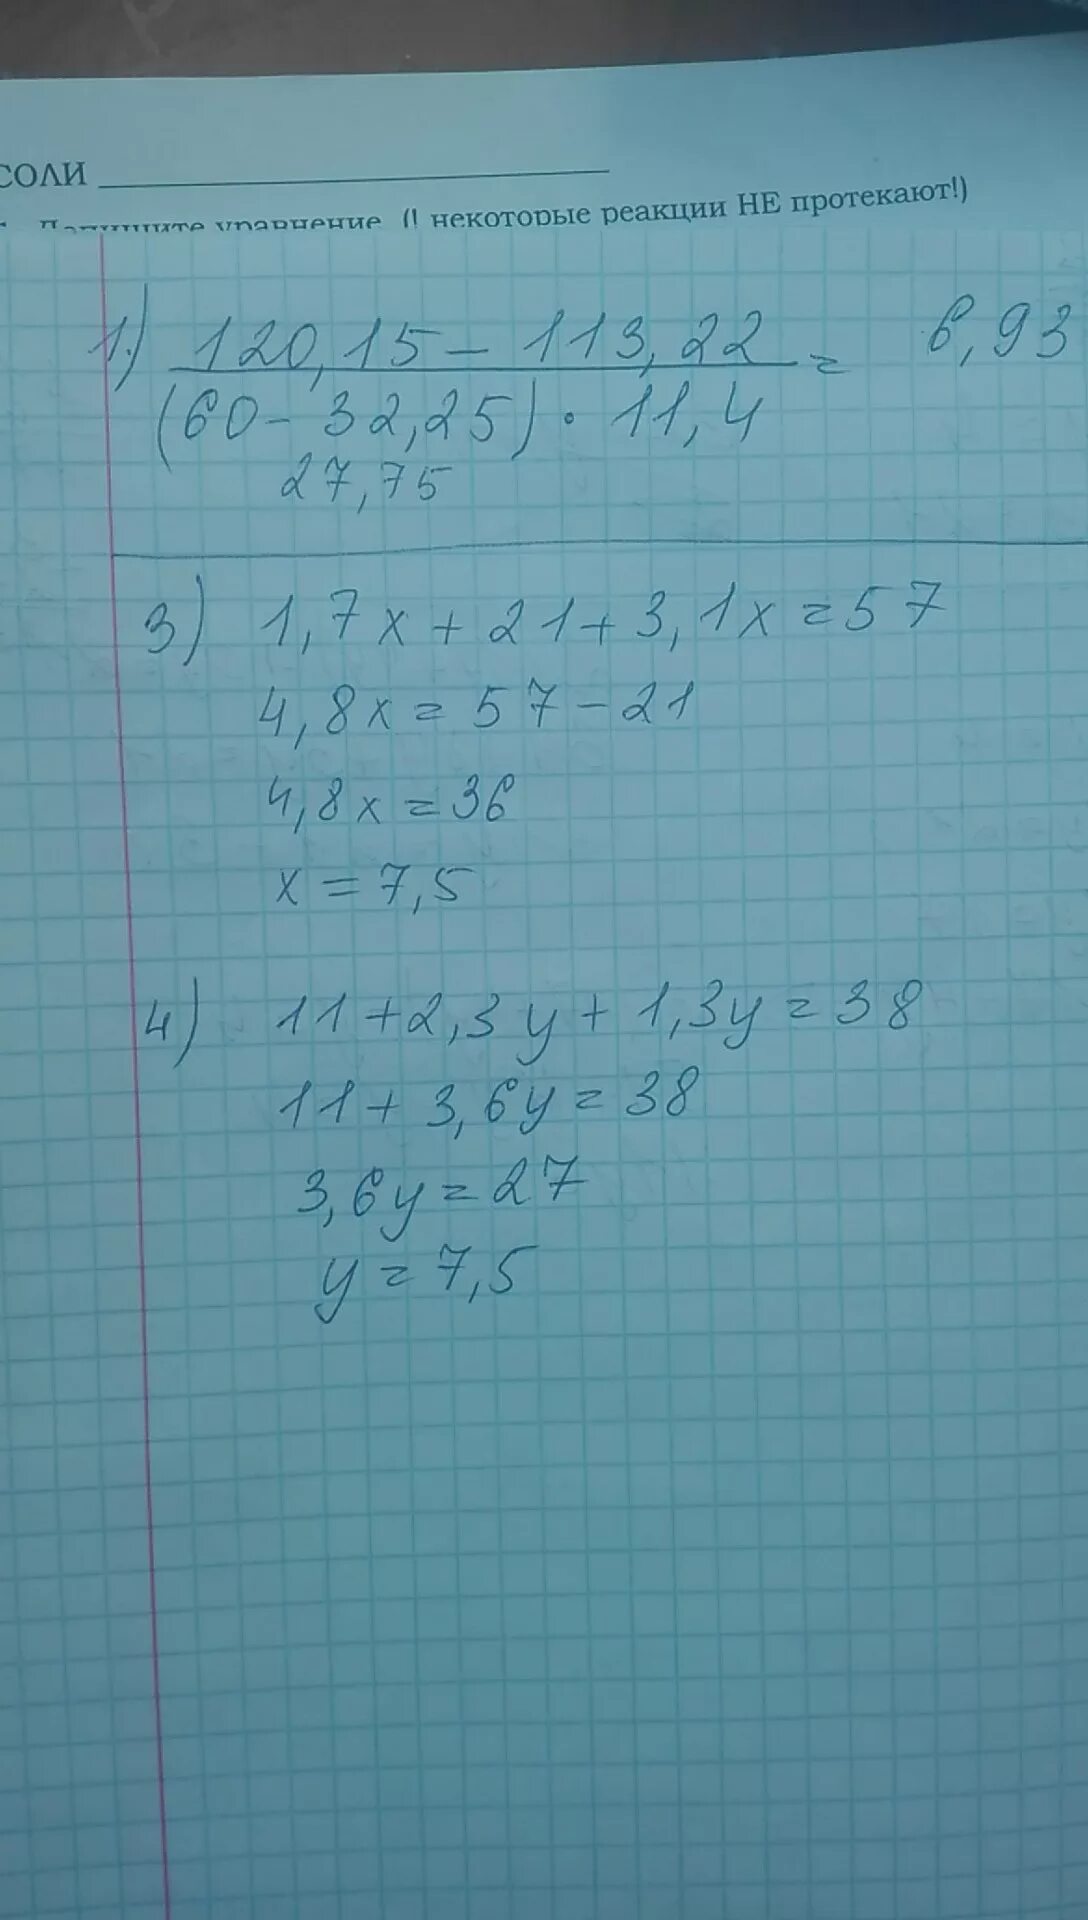 СОЛИ
Допишите уравнение (! некоторые реакции НЕ протекают!)
1.) 120,15 - 113,22 = 6,93
(60 - 32,25) · 11,4
27,75
3) 1,7x + 21 + 3,1x = 57
4,8x = 57 - 21
4,8x = 36
x = 7,5
4) 11 + 2,3y + 1,3y = 38
11 + 3,6y = 38
3,6y = 27
y = 7,5